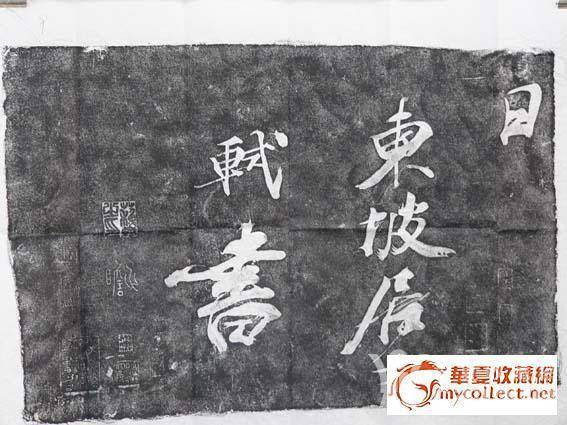 日
東坡居
軾書
華夏收藏網
mycollect.net